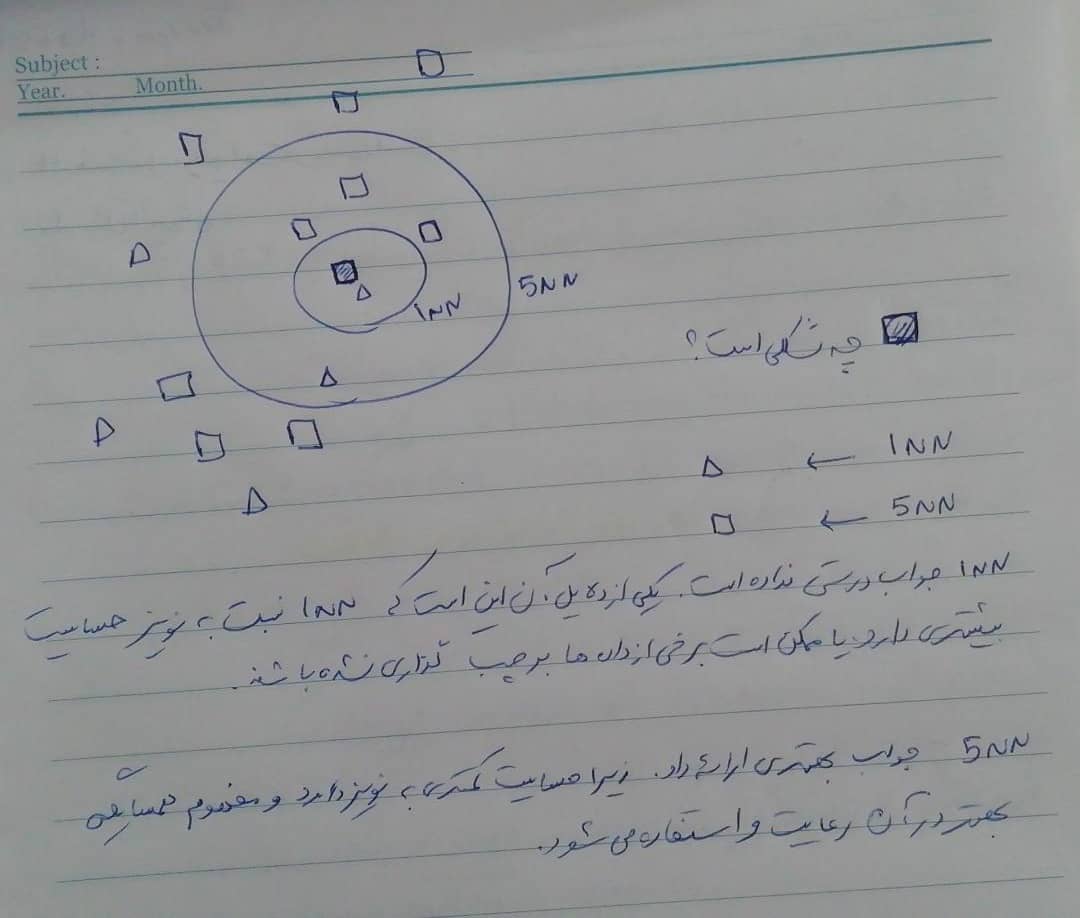 Subject :
Year. Month.
5NN
1NN
چه شکلی است؟
1NN ←
5NN ←
1NN جواب درستی نداده است. یکی از دلایل آن این است که 1NN نسبت به نویز حساسیت
بیشتری دارد. یا ممکن است برخی از داده ها برچسب گذاری نشده باشند.
5NN جواب بهتری ارائه داد. زیرا حساسیت کمتری به نویز دارد و مفهوم همسایگی
بهتر در آن رعایت و استفاده می شود.